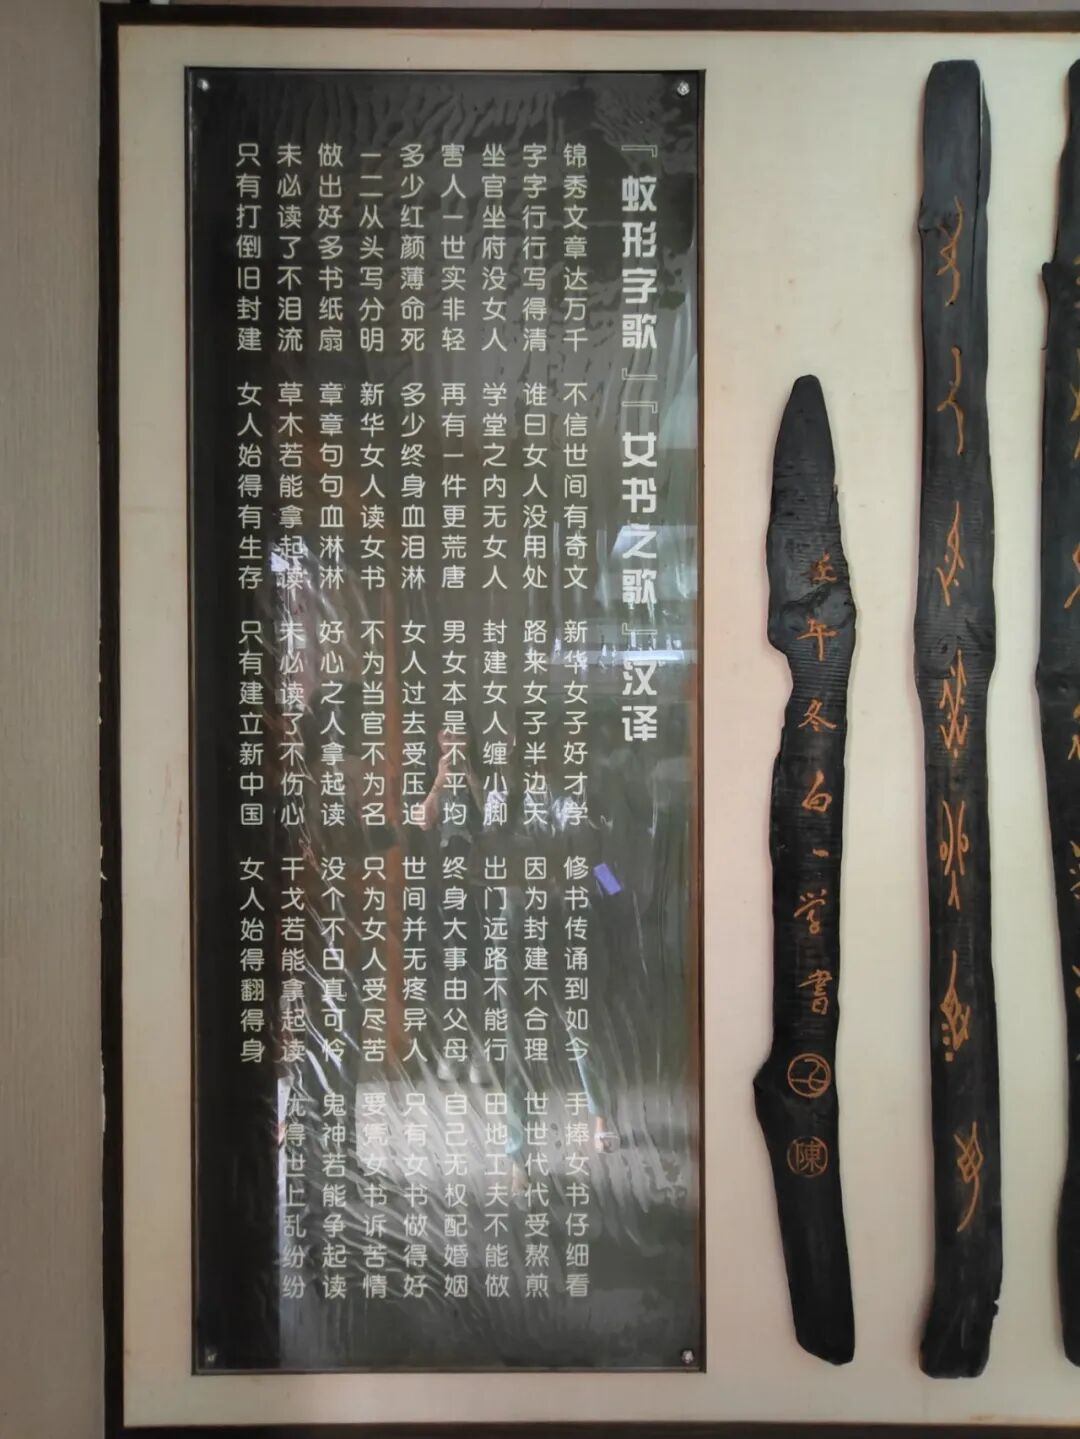 『蚊形字歌』『女书之歌』汉译
锦秀文章达万千 不信世间有奇文 新华女子好才学 修书传诵到如今 手捧女书仔细看
字字行行写得清 谁曰女人没用处 路来女子半边天 因为封建不合理 世世代代受熬煎
坐官坐府没女人 学堂之内无女人 封建女人缠小脚 出门远路不能行 田地工夫不能做
害人一世实非轻 再有一件更荒唐 男女本是不平均 终身大事由父母 自己无权配婚姻
多少红颜薄命死 多少终身血泪淋 女人过去受压迫 世间并无疼异人 只有女书做得好
一二从头写分明 新华女人读女书 不为当官不为名 只为女人受尽苦 要凭女书诉苦情
做出好多书纸扇 章章句句血淋淋 好心之人拿起读 没个不曰真可怜 鬼神若能争起读
未必读了不泪流 草木若能拿起读 未必读了不伤心 干戈若能拿起读 得世上乱纷纷
只有打倒旧封建 女人始得有生存 只有建立新中国 女人始得翻得身
午冬白一学書
陳